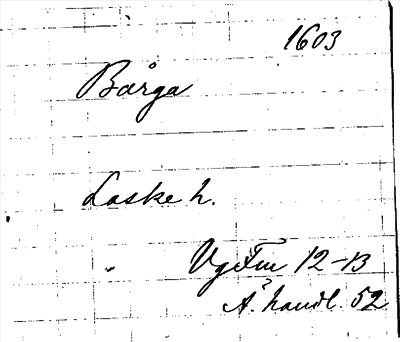 1603
Bårga
Laske h.
Vg Fm 12-13
Å. handl. 52